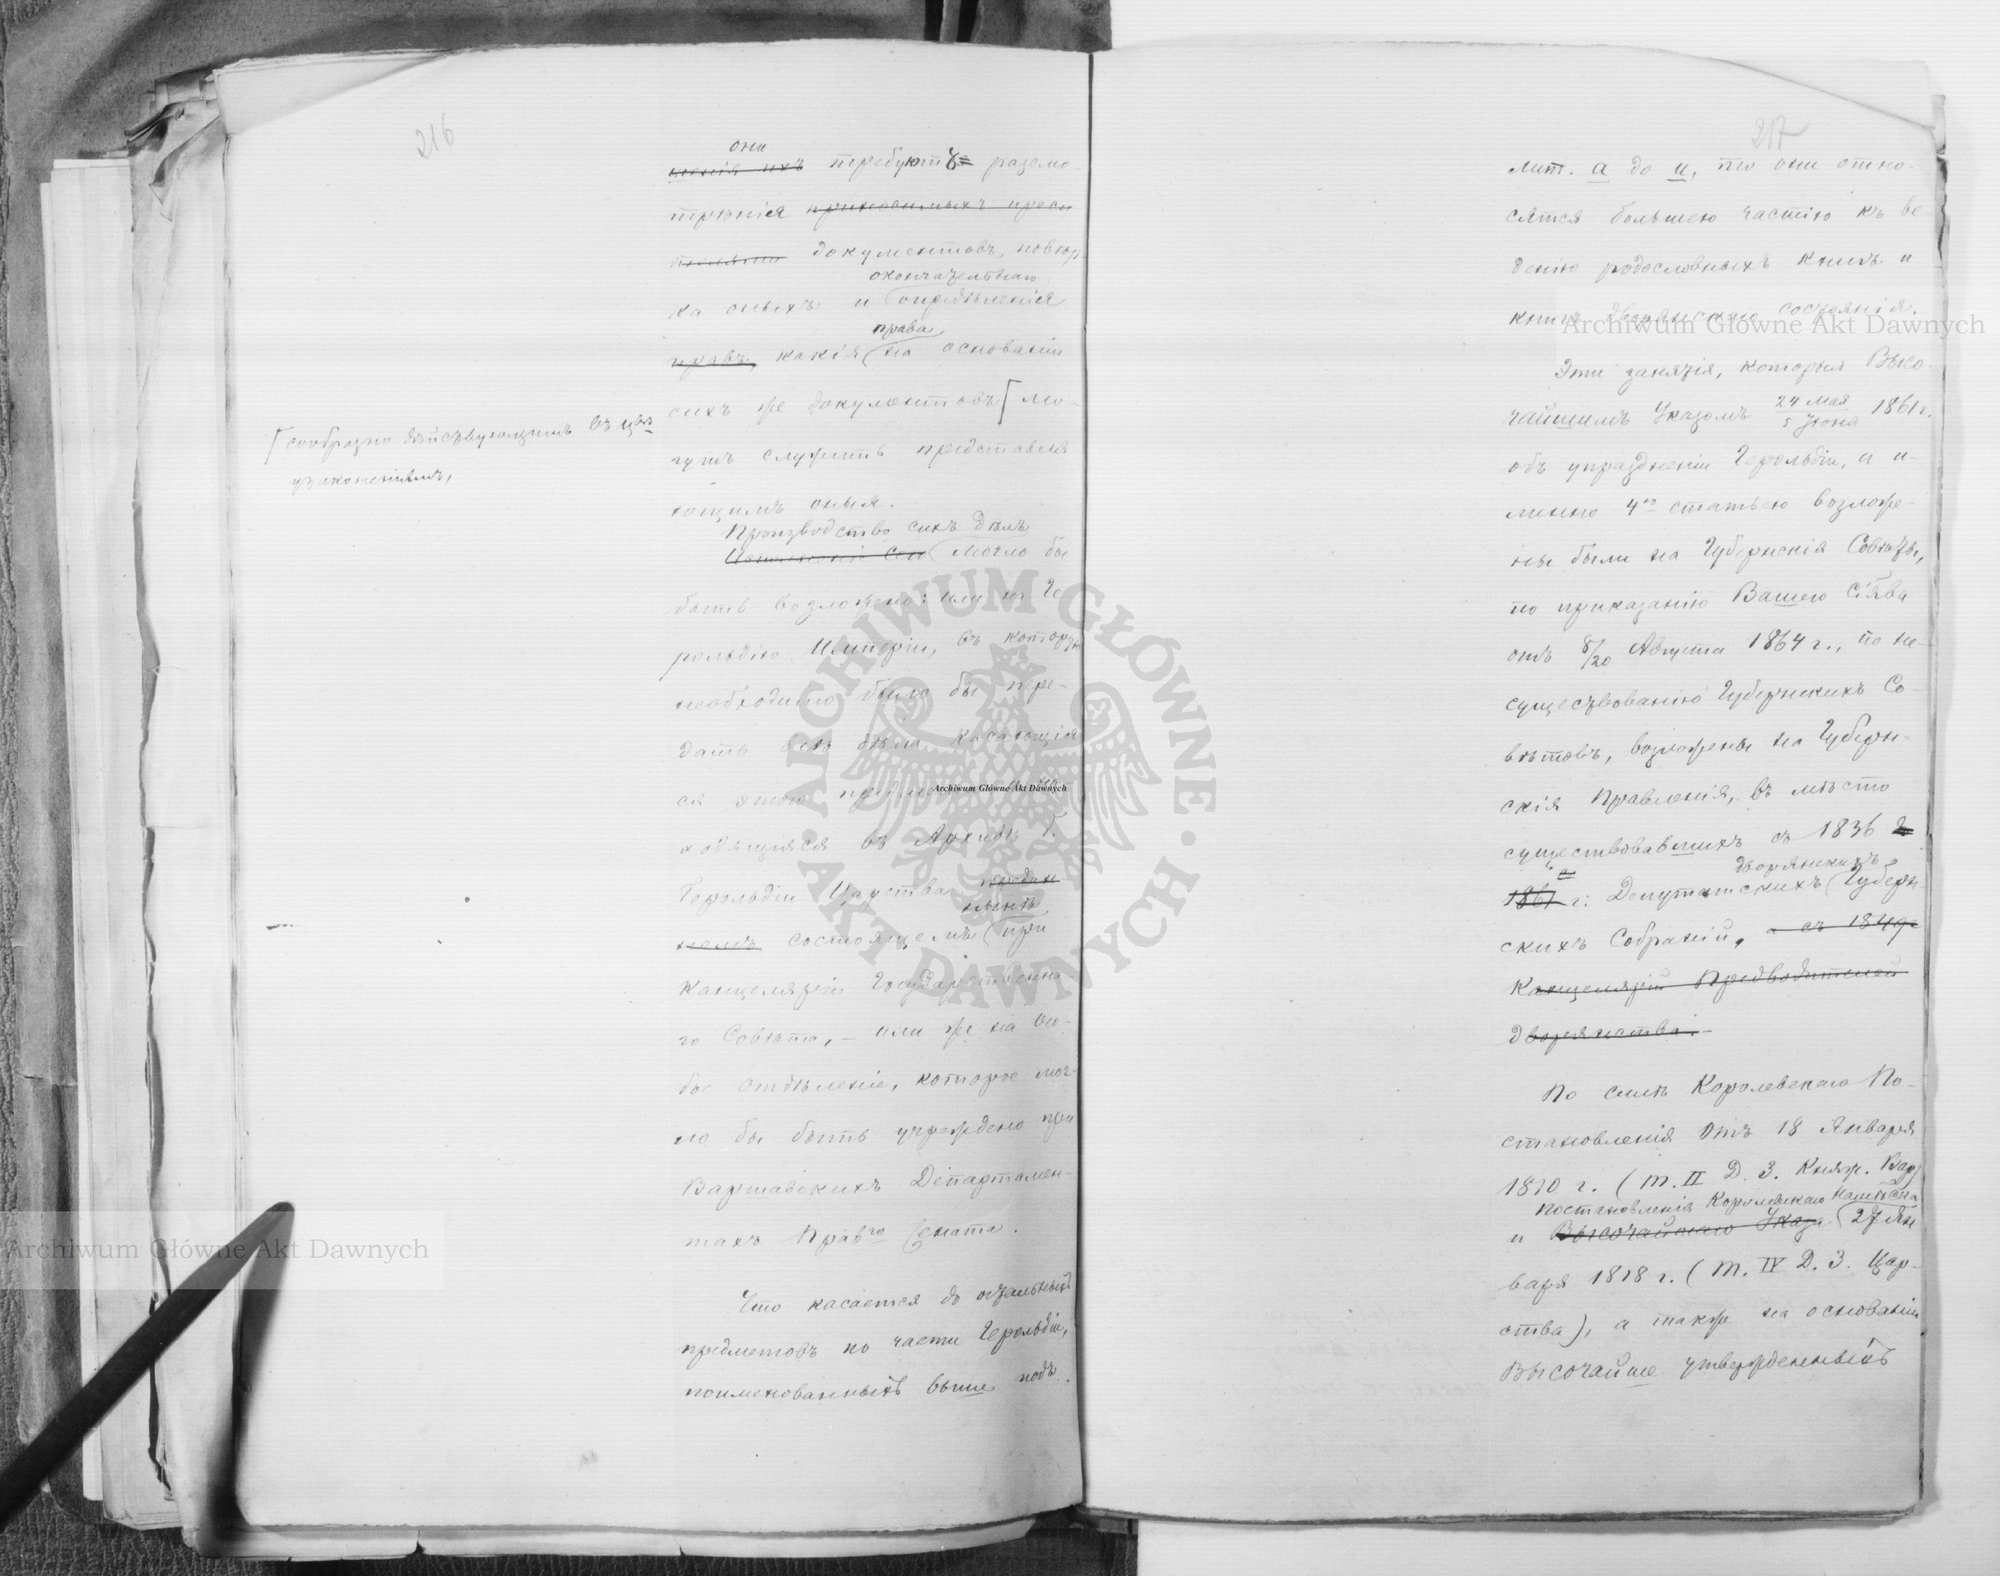 216
они
требуютъ разсмо-
трѣнія
документовъ, повѣр-
окончательнаго
ка оныхъ и опредѣленія
права
правъ, какія на основаніи
сихъ же документовъ мо-
[сообразно дѣйствующимъ въ
узаконеніямъ,
гутъ служить представля-
ющимъ оные.
Производство сихъ дѣлъ
могло бы
быть возложено: или на Ге-
рольдію Имперіи, въ которую
необходимо было бы пере-
дать всѣ дѣла касающія-
ся этого
ходящіяся въ Архивѣ б.
Герольдіи Царства
состоящемъ при
Канцеляріи Государственна-
го Совѣта, – или же на осо-
бое отдѣленіе, которое мог-
ло бы быть учреждено при
Варшавскихъ Департамен-
тахъ Правго Сената.
Что касается до остальныхъ
предметовъ по части Герольдіи,
поименованныхъ выше подъ
217
лит. а до и, то они отно-
сятся большею частію къ ве-
денію родословныхъ книгъ и
книгъ дворянскаго состоянія.
Эти занятія, которыя Высо-
чайшимъ Указомъ 24 Мая / 5 Іюня 1861 г.
объ упраздненіи Герольдіи, а и-
менно 4ю статьею возложе-
ны были на Губернскія Совѣты,
по приказанію Вашего Сіятва
отъ 8/20 Августа 1864 г., по не-
существованію Губернскихъ Со-
вѣтовъ, возложены на Губерн-
скія Правленія, въ мѣсто
существовавшихъ съ 1836
дворянскихъ
1861 г. Депутатскихъ Губерн-
скихъ Собраній, а съ 1849
Канцелярій Предводителей
дворянства.
По силѣ Королевскаго По-
становленія отъ 18 Января
1810 г. (т. II Д. З. Княж. Вар.)
Постановленія Королевскаго Намѣстн
и Высочайшаго Указа 27 Ян
варя 1818 г. (т. IV Д. З. Цар-
ства), а также на основаніи
Высочайше утвержденныхъ
Archiwum Główne Akt Dawnych
Archiwum Główne Akt Dawnych
Archiwum Główne Akt Dawnych
ARCHIWUM GŁÓWNE · AKT DAWNYCH ·